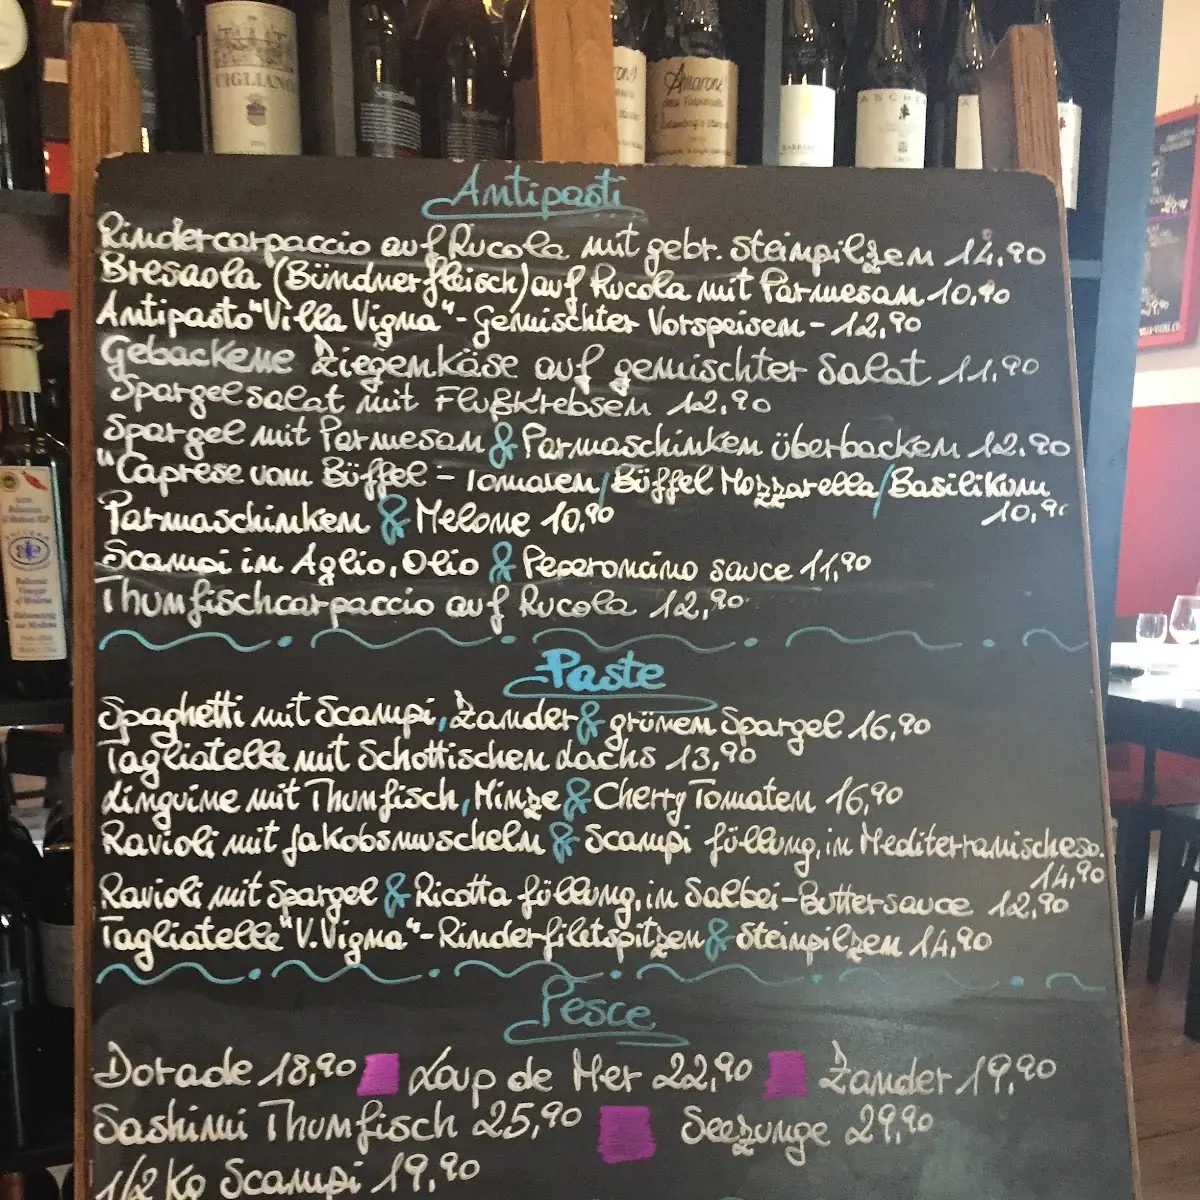 VIGLIANO
Amarone
ASCHE
Antipasti
Rindercarpaccio auf Rucola mit gebr. Steinpilzen 14,90
Bresaola (Bündnerfleisch) auf Rucola mit Parmesan 10,90
Antipasto "Villa Vigna" - Gemischter Vorspeisen - 12,90
Gebackene Ziegenkäse auf gemischter Salat 11,90
Spargelsalat mit Flußkrebsen 12,90
Spargel mit Parmesan & Parmaschinken überbacken 12,90
"Caprese vom Büffel - Tomaten/Büffel Mozzarella/Basilikum
10,90
Parmaschinken & Melone 10,90
Scampi in Aglio, Olio & Peperoncino sauce 11,90
Thunfischcarpaccio auf Rucola 12,90
Paste
Spaghetti mit Scampi, Zander & grünem Spargel 16,90
Tagliatelle mit Schottischen Lachs 13,90
Linguine mit Thunfisch, Minze & Cherry Tomaten 16,90
Ravioli mit Jakobsmuscheln & Scampi füllung, in Mediterranischeso.
14,90
Ravioli mit Spargel & Ricotta füllung, in Salbei-Buttersauce 12,90
Tagliatelle "V. Vigna" - Rinderfiletspitzen & Steinpilzen 14,90
Pesce
Dorade 18,90 Loup de Mer 22,90 Zander 19,90
Sashimi Thunfisch 25,90 Seezunge 29,90
1/2 Kg Scampi 19,90